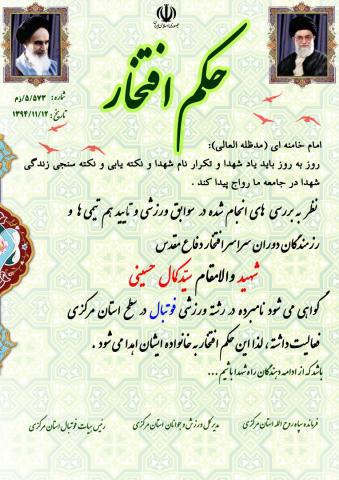 جمهوری اسلامی ایران
حکم افتخار
شماره : ۵/۵۷۳/زم
تاریخ: ۱۳۹۴/۱۱/۱۲
امام خامنه ای (مدظله العالی):
روز به روز باید یاد شهدا و تکرار نام شهدا و نکته یابی و نکته سنجی زندگی
شهدا در جامعه ما رواج پیدا کند .
نظر به بررسی های انجام شده در سوابق ورزشی و تایید هم تیمی ها و
رزمندگان دوران سراسر افتخار دفاع مقدس
شهید والامقام سیّد کمال حسینی
گواهی می شود نامبرده در رشته ورزشی فوتبال در سطح استان مرکزی
فعالیت داشته ، لذا این حکم افتخار به خانواده ایشان اهدا می شود .
باشد که از ادامه دهندگان راه شهدا باشیم...
فرمانده سپاه روح الله استان مرکزی
مدیر کل ورزش و جوانان استان مرکزی
رئیس هیات فوتبال استان مرکزی